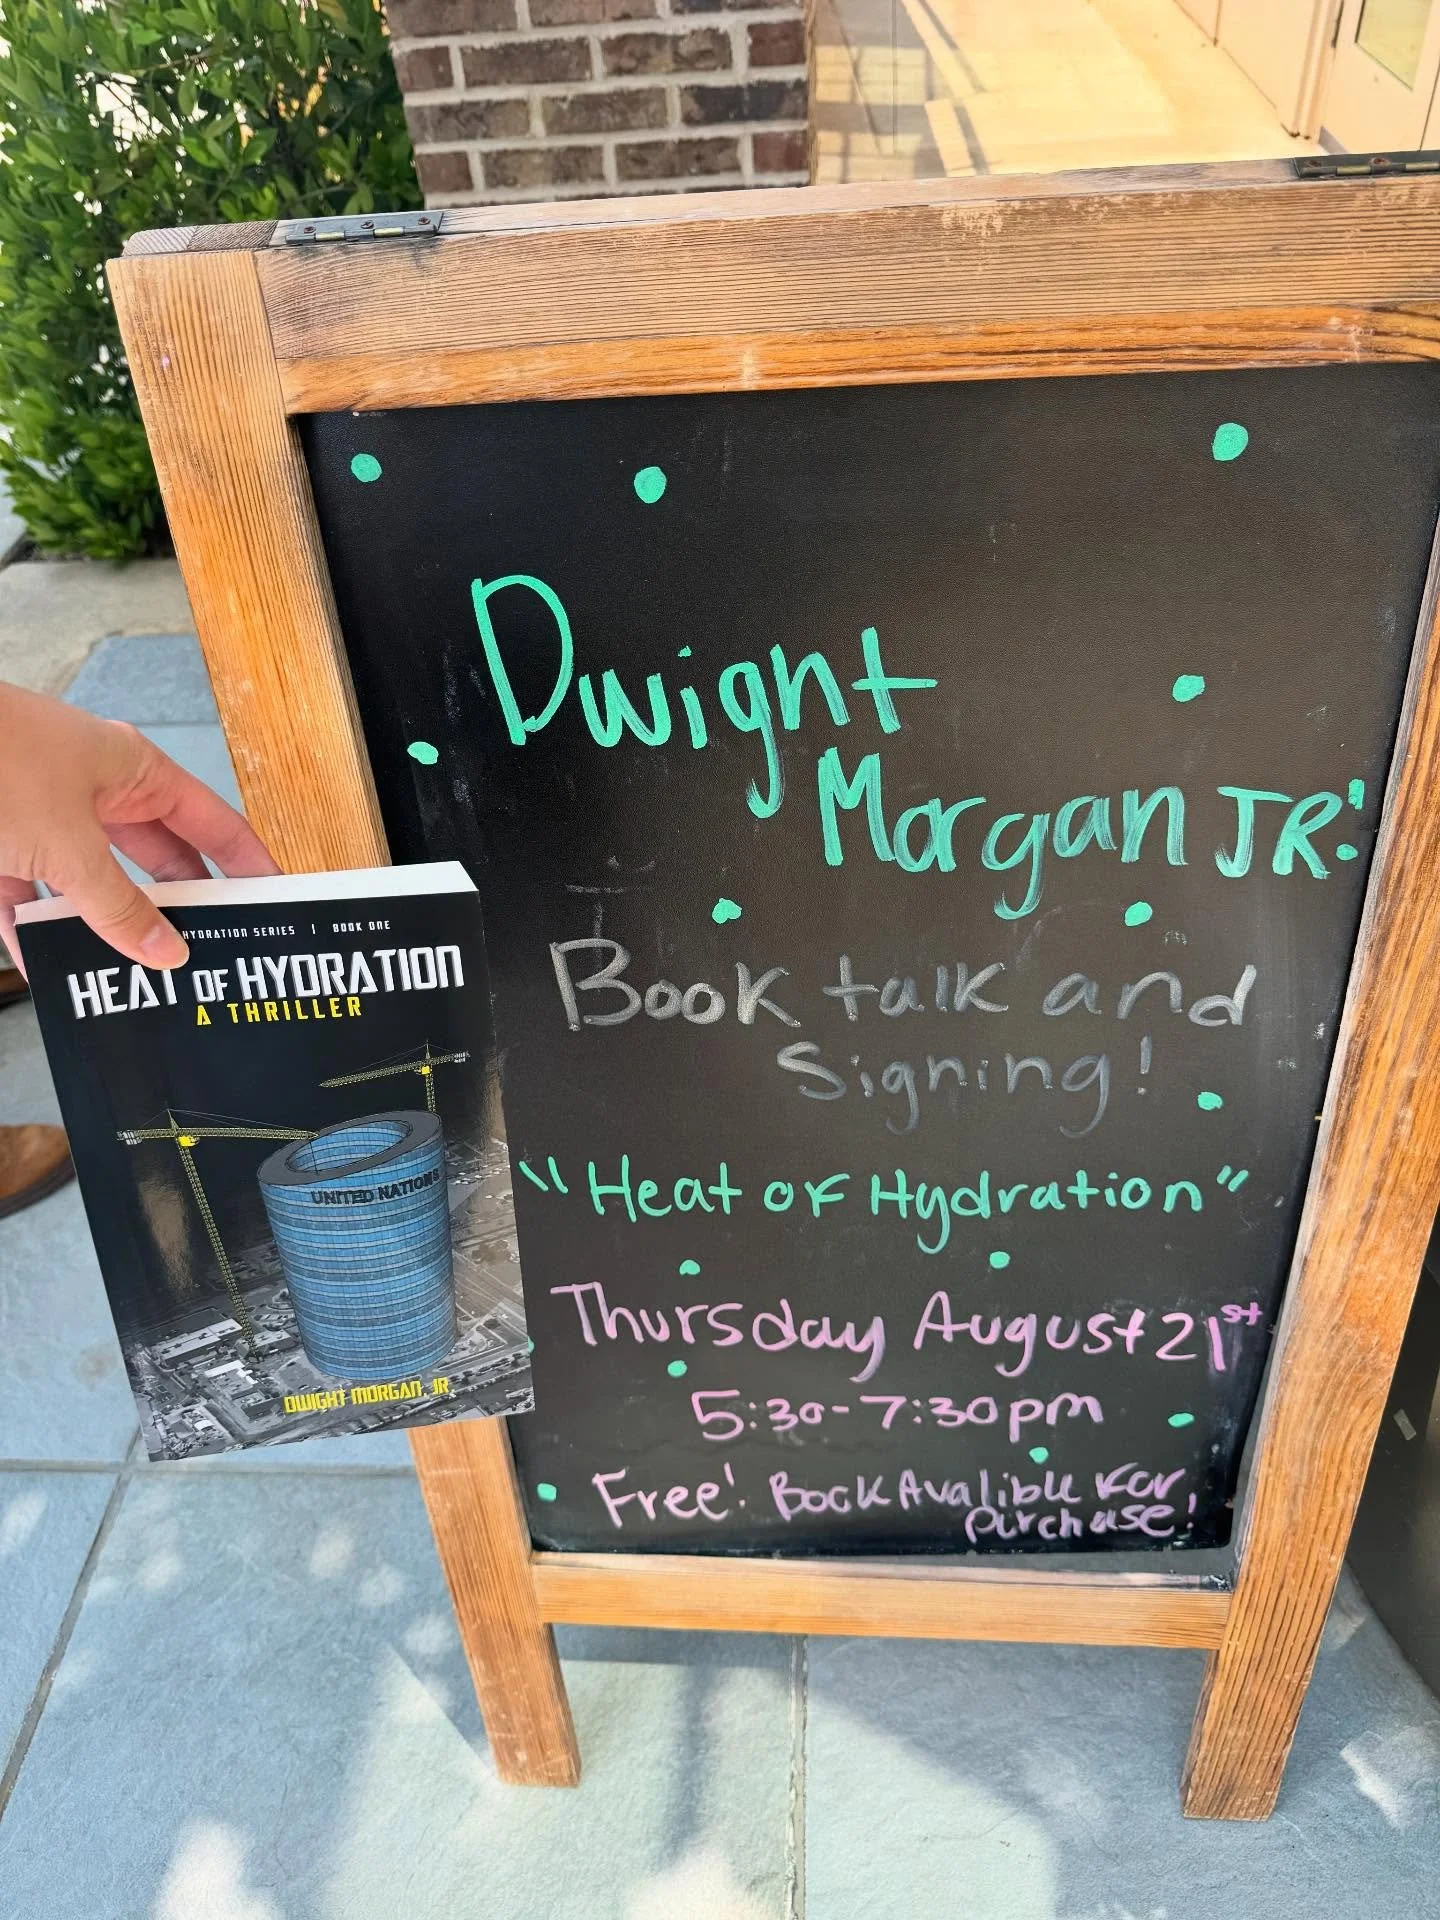 Dwight
Morgan JR!
Book talk and
Signing!
"Heat of Hydration"
Thursday August 21st
5:30-7:30pm
Free! Book Avalible for
purchase!
HYDRATION SERIES | BOOK ONE
HEAT OF HYDRATION
A THRILLER
UNITED NATIONS
DWIGHT MORGAN, JR.